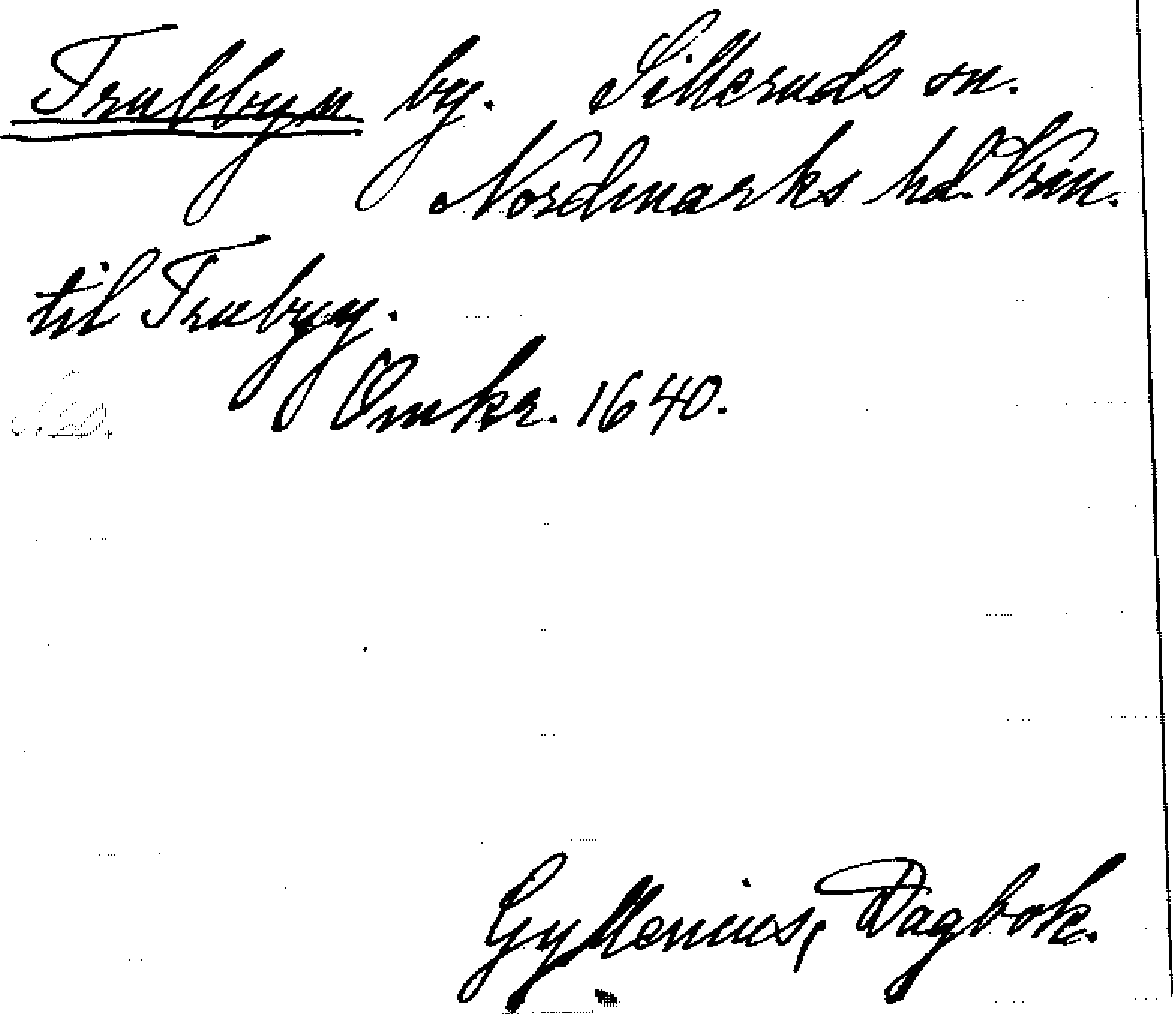 Trubbyn by. Silleruds sn.
Nordmarks hd. Vrm.
til Trubyy.
Omkr. 1640.
Gyllenius, Dagbok.